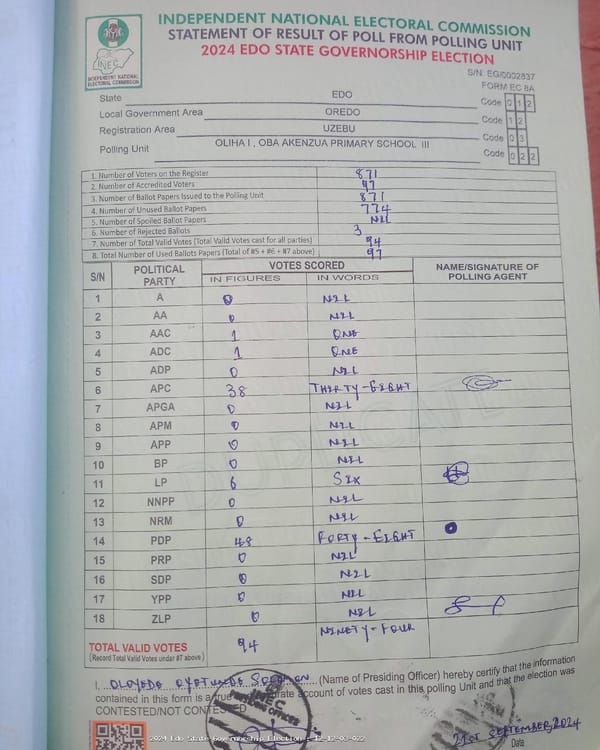 INDEPENDENT NATIONAL ELECTORAL COMMISSION
STATEMENT OF RESULT OF POLL FROM POLLING UNIT
2024 EDO STATE GOVERNORSHIP ELECTION
INEC
INDEPENDENT NATIONAL
ELECTORAL COMMISSION
S/N: EG/0002837
FORM EC 8A
State EDO Code 0 1 2
Local Government Area OREDO Code 1 2
Registration Area UZEBU Code 0 3
Polling Unit OLIHA I , OBA AKENZUA PRIMARY SCHOOL III Code 0 2 2
1. Number of Voters on the Register 871
2. Number of Accredited Voters 97
3. Number of Ballot Papers Issued to the Polling Unit 871
4. Number of Unused Ballot Papers 774
5. Number of Spoiled Ballot Papers NIL
6. Number of Rejected Ballots 3
7. Number of Total Valid Votes (Total Valid Votes cast for all parties) 94
8. Total Number of Used Ballots Papers (Total of #5 + #6 + #7 above) 97
S/N POLITICAL PARTY VOTES SCORED NAME/SIGNATURE OF POLLING AGENT
IN FIGURES IN WORDS
1 A 0 NIL
2 AA 0 NIL
3 AAC 1 ONE
4 ADC 1 ONE
5 ADP 0 NIL
6 APC 38 THIRTY-EIGHT
7 APGA 0 NIL
8 APM 0 NIL
9 APP 0 NIL
10 BP 0 NIL
11 LP 6 SIX
12 NNPP 0 NIL
13 NRM 0 NIL
14 PDP 48 FORTY-EIGHT
15 PRP 0 NIL
16 SDP 0 NIL
17 YPP 0 NIL
18 ZLP 0 NIL
TOTAL VALID VOTES 94 NINETY-FOUR
(Record Total Valid Votes under #7 above)
I, OLOYEDE OYETUNDE SOLOMON (Name of Presiding Officer) hereby certify that the information
contained in this form is a true account of votes cast in this polling Unit and that the election was
CONTESTED/NOT CONTESTED
INEC
21ST SEPTEMBER, 2024
Date
2024 Edo State Governorship Election - 12-12-03-022